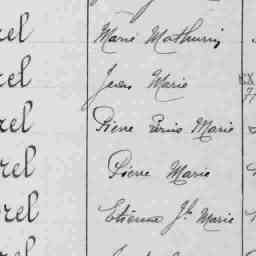 rel Marie Mathurin
rel Jean Marie
rel Pierre Louis Marie
rel Pierre Marie
rel Etienne Jh Marie